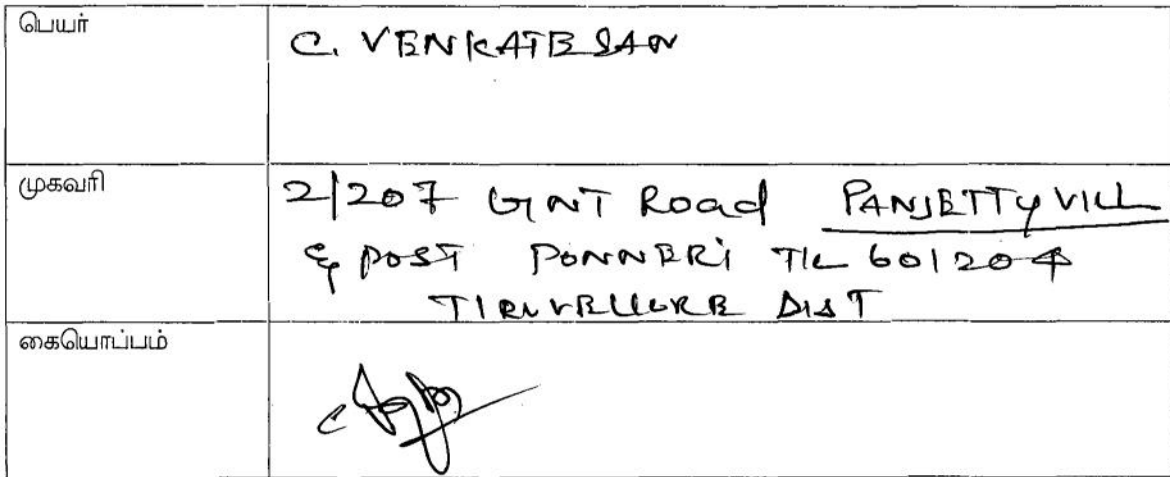 பெயர்
C. VENKATESAN
முகவரி
2/207 GNT Road PANJETTY VILL
& POST PONNERI TK 601204
TIRUVELLORE DIST
கையொப்பம்